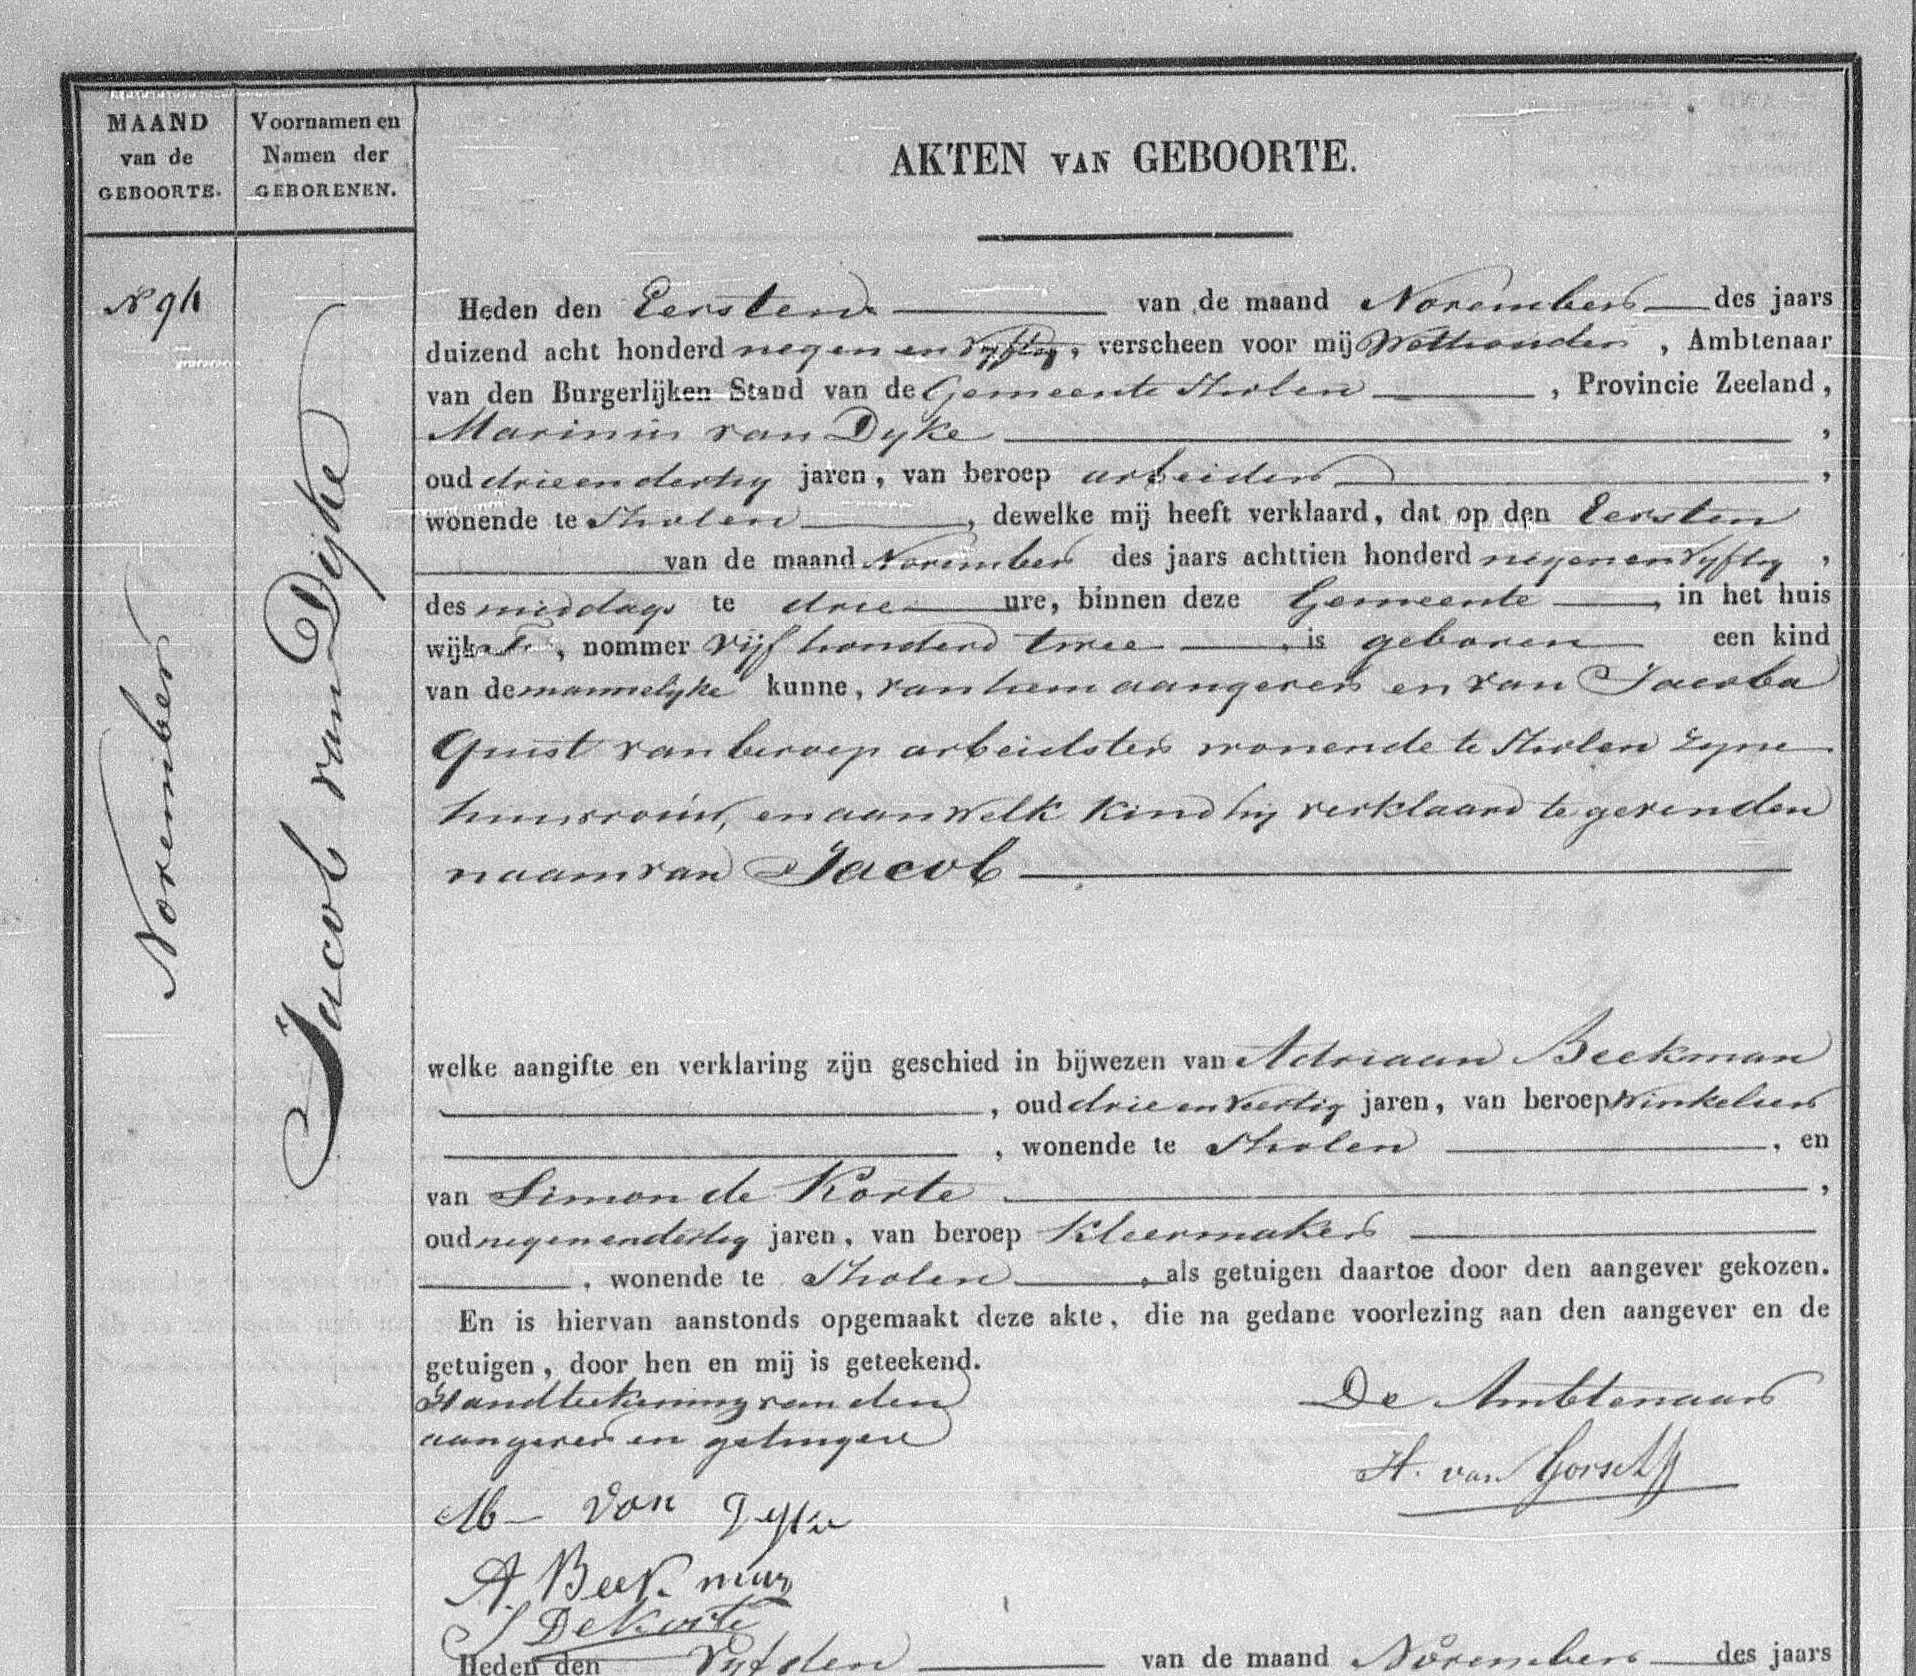 MAAND
van de
GEBOORTE.
Voornamen en
Namen der
GEBORENEN.
AKTEN VAN GEBOORTE.
November
Jacob van Dijke
Heden den Eersten van de maand November des jaars
duizend acht honderd negen en vyftig, verscheen voor mij Wethouder, Ambtenaar
van den Burgerlijken Stand van de Gemeente Tholen, Provincie Zeeland,
Marinus van Dyke,
oud drieendertig jaren, van beroep arbeider,
wonende te Tholen, dewelke mij heeft verklaard, dat op den Eersten
van de maand November des jaars achttien honderd negenenvyftig,
des middags te drie ure, binnen deze Gemeente, in het huis
wijk, nommer vijf honderd twee, is geboren een kind
van de mannelyke kunne, van hem aangever en van Jacoba
Quist van beroep arbeidster wonende te Tholen zyne
huisvrouw, en aan welk kind hij verklaard te geven den
naam van Jacob
welke aangifte en verklaring zijn geschied in bijwezen van Adriaan Beekman
, oud drie en veertig jaren, van beroep Winkelier
, wonende te Tholen, en
van Simon de Korte,
oud negenendertig jaren, van beroep Kleermaker
, wonende te Tholen, als getuigen daartoe door den aangever gekozen.
En is hiervan aanstonds opgemaakt deze akte, die na gedane voorlezing aan den aangever en de
getuigen, door hen en mij is geteekend.
Handteekening van den
aangever en getuigen
De Ambtenaar
H. van Gorsel
M van Dyke
A. Beekman
S De Korte
Heden den Vyfden van de maand November des jaars